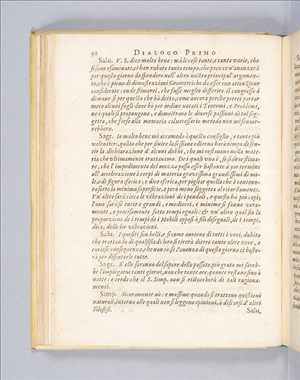 92 DIALOGO PRIMO
Salu. V. S. dice molto bene: mà le cose tante, e tanto varie, che
si sono esaminate, ci han rubato tanto tempo, che poco ce n'avanzerà
per questo giorno da spendere nell'altro nostro principal argomen-
to, che è pieno di dimostrazioni Geometriche da esser con attenzione
considerate: onde stimerei, che fusse meglio differire il congresso à
dimane sì per questo che hò detto, come ancora perche potrei portar
meco alcuni fogli dove hò per ordine notati i Teoremi, e Problemi,
ne i quali si propongono, e dimostrano le diverse passioni di tal sog-
getto, che forse alla memoria col necessario metodo non mi sovver-
rebbero.
Sagr. Io molto bene mi accomodo à questo consiglio, e tanto più
volentieri, quanto che per finire la sessione odierna harò tempo di senti-
re la dichiarazione d'alcuni dubbi, che mi restavano nella mate-
ria che ultimamente trattavamo. De i quali uno è, se si deve stima-
re, che l'impedimento del mezzo possa esser bastante à por termine
all'accelerazione à corpi di materia gravissima grandissimi di mo-
le, e di figura sferica; e dico sferica, per pigliar quella che è contenu-
ta sotto la minima superficie, e però meno soggetta al ritardamento.
Un'altro sarà circa le vibrazioni de i pendoli, e questo hà più capi;
l'uno sarà se tutte e grandi, e mediocri, e minime si fanno vera-
mente, e precisamente sotto tempi eguali: & un'altro qual sia la
proporzione de i tempi de i Mobili appesi à fili diseguali, de i tempi,
dico, delle lor vibrazioni.
Salu. I quesiti son belli, e sì come avviene di tutti i veri, dubito
che trattandosi di qualsisia di loro si tirerà dietro tante altre vere, e
curiose conseguenze, che non sò se l'avanzo di questo giorno ci baste-
rà per discuterle tutte.
Sagr. S'elle saranno del sapore delle passate, più grato mi sareb-
be l'impiegarvi tanti giorni, non che tante ore, quante restano sino à
notte: e credo che il S. Simp. non si ristuccherà di tali ragiona-
menti.
Simp. Sicuramente nò: e massime quando si trattano quistioni
naturali, intorno alle quali non si leggono opinioni, ò discorsi d'altri
Filosofi.
Salu,